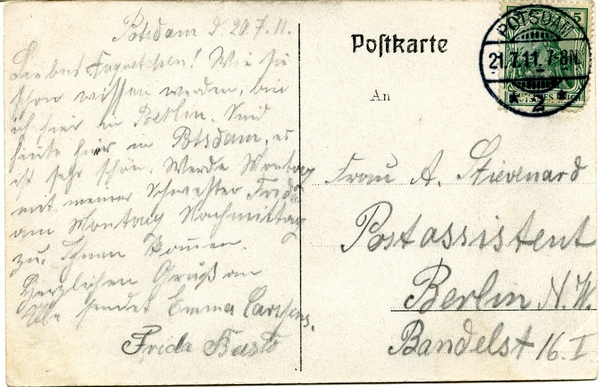 Potsdam d. 20.7.11.
Liebes Fräulein! Wie Sie
schon wissen werden, bin
ich hier in Berlin. Sind
heute hier in Potsdam, es
ist sehr schön. Werde Montag
mit meiner Schwester Frida
am Montag Nachmittag
zu Ihnen kommen.
Herzlichen Gruß an
Alle sendet Emma Carstens.
Frida
Postkarte
An
Frau A. Stievenard
Postassistent
Berlin N.W.
Bandelst 16. I
POTSDAM
21.7.11. 7-8N.
* 2 *
5
DEUTSCHES REICH